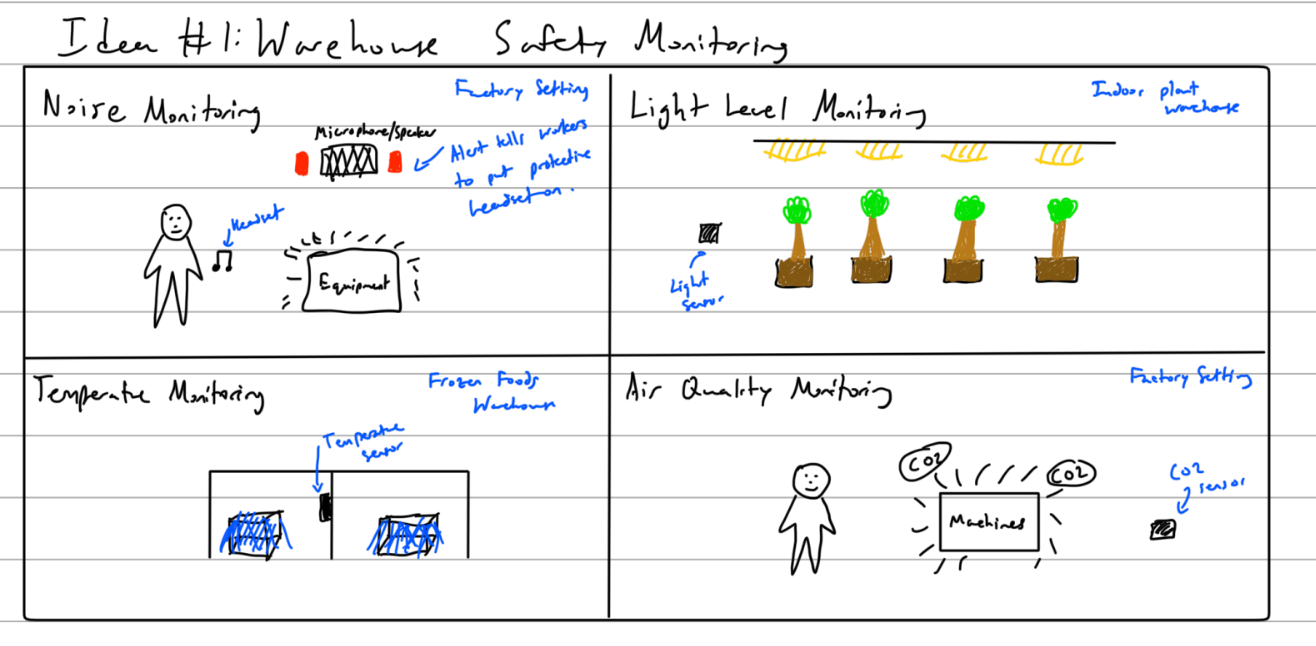 Idea #1: Warehouse Safety Monitoring
Noise Monitoring
Factory Setting
Microphone/Speaker
Alert tells workers
to put protective
headset on.
Headset
Equipment
Light Level Monitoring
Indoor plant
warehouse
Light
sensor
Temperature Monitoring
Frozen Foods
Warehouse
Temperature
sensor
Air Quality Monitoring
Factory Setting
CO2
CO2
Machines
CO2
sensor